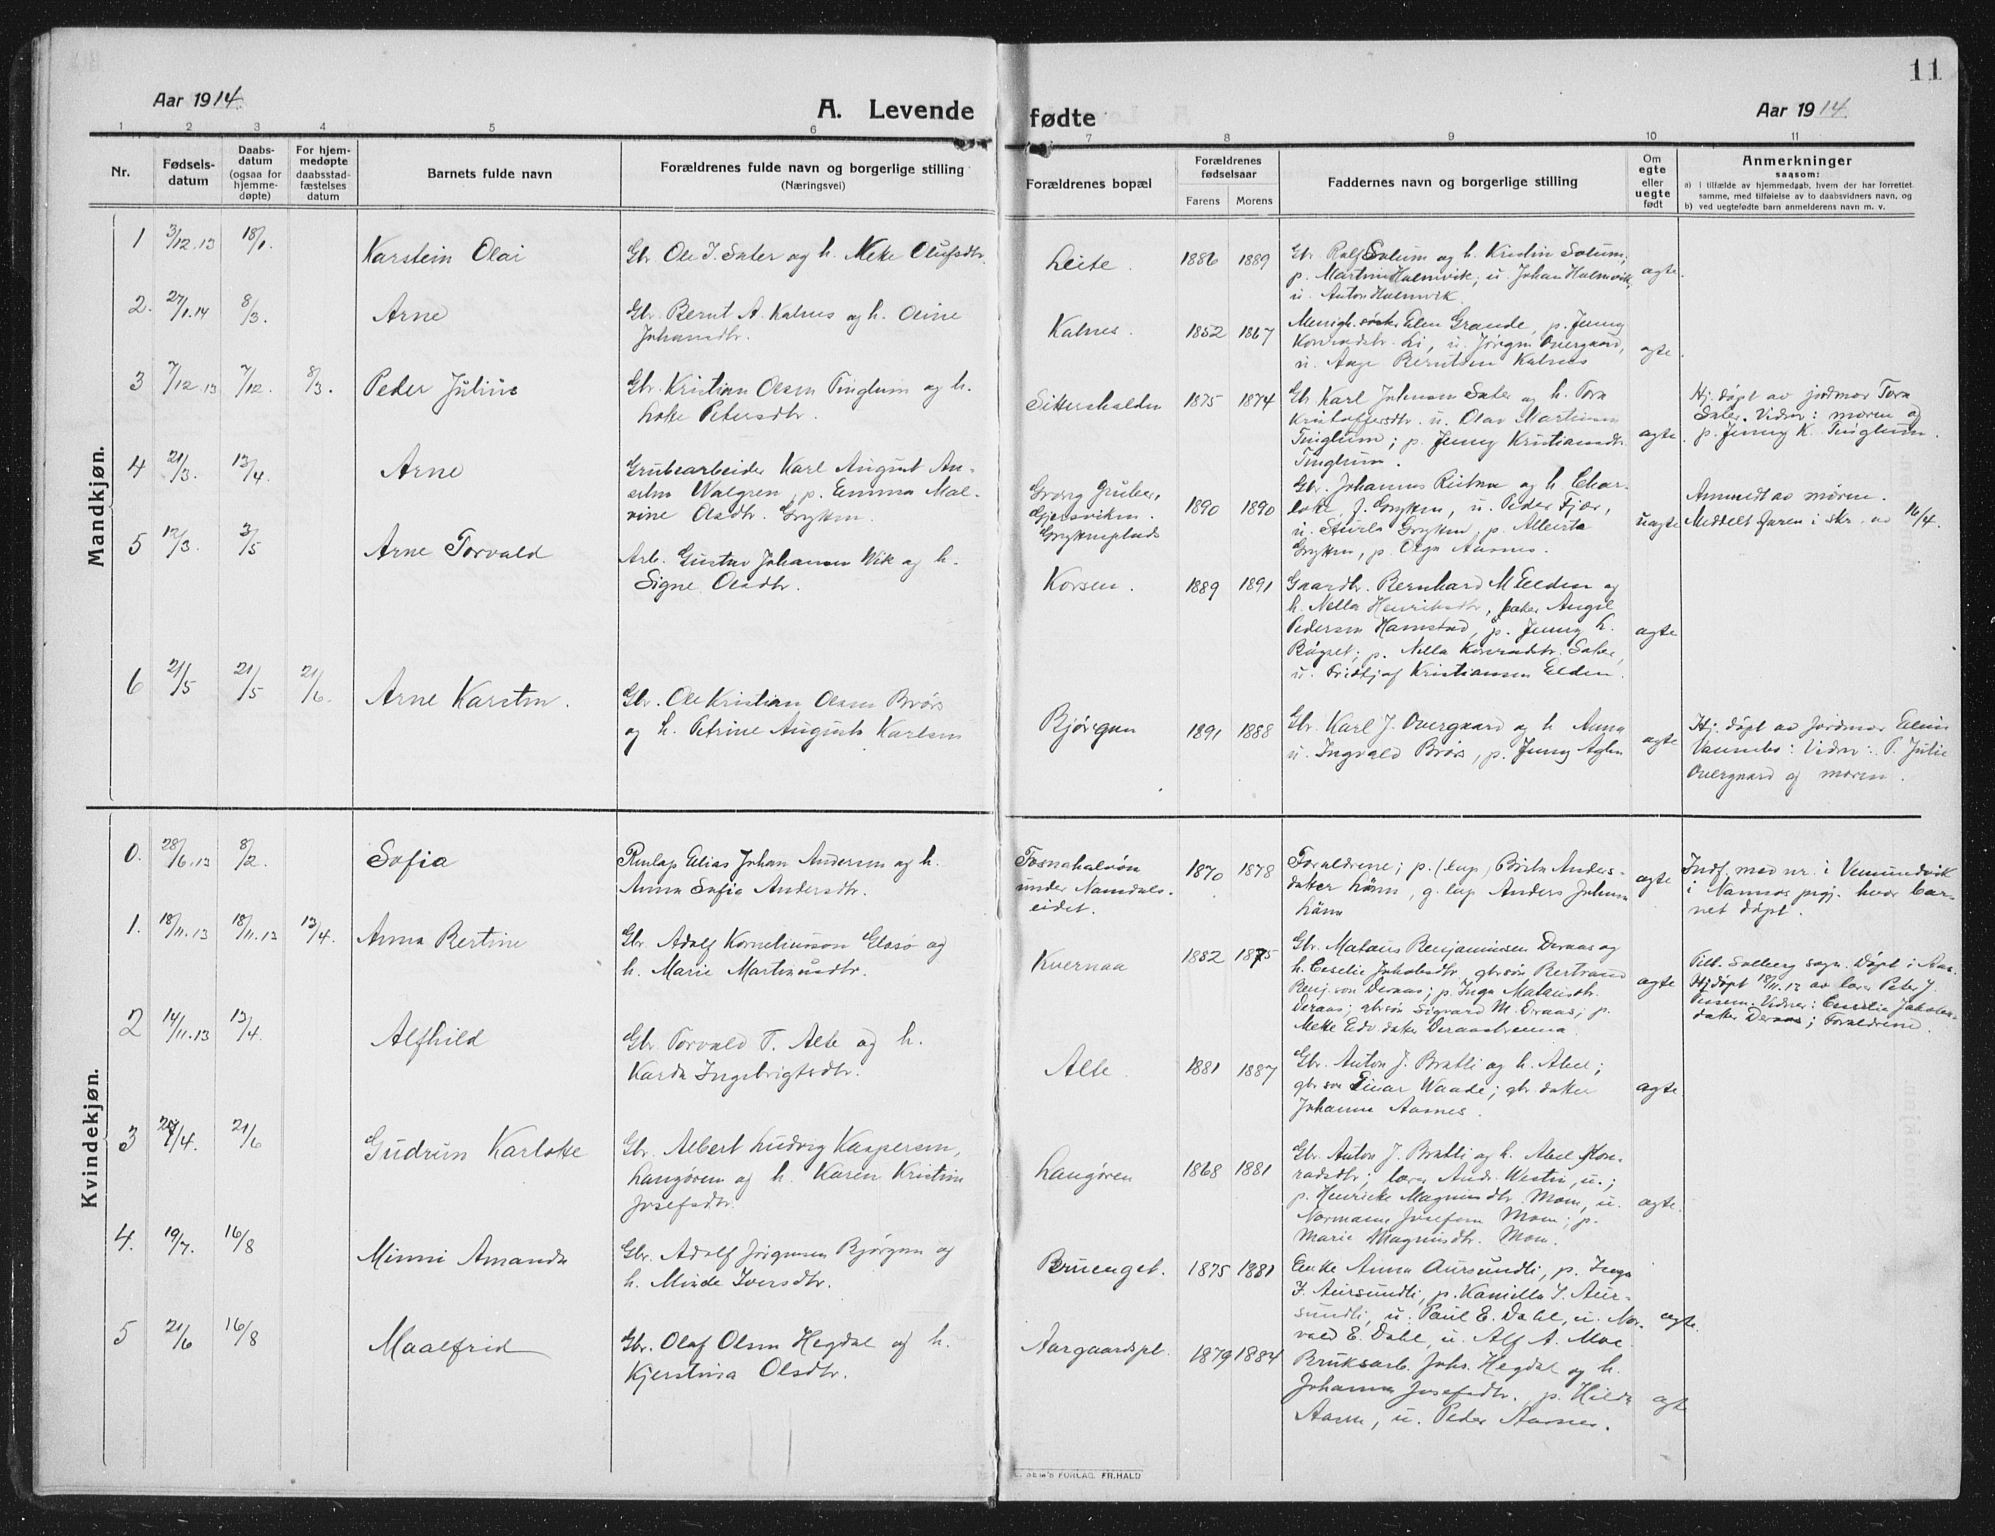 11
Aar 1914.
A. Levende
fødte
Aar 1914.
1 2 3 4 5 6 7 8 9 10 11
Nr.
Fødsels-
datum
Daabs-
datum
(ogsaa for
hjemme-
døpte)
For hjem-
medøpte
daabsstad-
fæstelses
datum
Barnets fulde navn
Forældrenes fulde navn og borgerlige stilling
(Næringsvei)
Forældrenes bopæl
Forældrenes
fødselsaar
Farens Morens
Faddernes navn og borgerlige stilling
Om
egte
eller
uegte
født
Anmerkninger
saasom:
a) i tilfælde av hjemmedaab, hvem der har forrettet
samme, med tilføielse av to daabsvidners navn, og
b) ved uegtefødte barn anmelderens navn m. v.
Mandkjøn.
1 3/12.13 18/1. Karstein Olai
Gbr. Ole J. Sater og h. Meke Olufsdtr.
Leite. 1886 1889
Gbr Rolf Solum og h. Kristin Solum;
p. Martine Holmvik; u. Johan Holmvik,
u. Anton Holmvik.
ægte.
2. 27/1.14 8/3. Arne
Gbr. Bernt A. Kalnes og h. Oline
Johansdtr.
Kalnes. 1852 1867
Menigh.søster Elen Grande, p. Jenny
Konradsdtr. Li, u. Jörgen Overgaard,
u. Aage Berntsen Kalnes
ægte.
3 7/12.13 7/12. 8/3. Peder Julius
Gbr. Kristian Olsen Tinglum og h.
Loke Petersdtr.
Sitterhalden 1875 1874
Gbr Karl Johnsen Sater og h. Tora
Kristoffersdtr. u. Olav Martinus
Tinglum; p. Jenny Kristiansdtr.
Tinglum.
ægte
Hj. døpt av jordmor Tora
Sater. Vidner: moren og
p. Jenny K. Tinglum.
4 21/3. 13/4. Arne
Grubearbeider Karl August An-
selm Walgren, p. Emma Mal-
vine Olsdtr. Grytten.
Grong Gruber,
Gjersviken.
1890 1890
Gbr. Johannes og h. Char-
lote J. Grytten, u. Peder Fjær,
u. Sturla Grytten, p. Alberta
Grytten, p. Olga Aasnes.
uægte
Anmeldt av moren.
Meddelt faren i skr. av 16/4.
5 12/3. 3/5 Arne Torvald
Arb. Gustav Johansen Vik og h.
Signe Olsdtr.
Korsen. 1889 1891
Gaardbr. Bernhard M Elden og
h. Nella Henriksdtr, Angel
Pedersen Hamstad, p. Jenny h.
Bøgset, p. Nella Konradsdtr. Sater,
u. Fridtjof Kristiansen Elden.
ægte
6 21/5 21/5 21/6. Arne Karsten.
Gbr. Ole Kristian Olsen Brörs
og h. Petrine Augusta Karlsen
Bjørgan 1891 1888
Gbr. Karl J. Overgaard og h Anna
u. Ingvald Brörs, p. Jenny Aglen
ægte
Hj. døpt av jordmor Elen
Vannebo: Vidner: P. Julie
Overgaard og moren.
Kvindekjøn.
0. 28/6.13 8/2. Sofia
Renlap Elias Johan Andersen og h.
Anna Sofia Andersdtr.
Fosnahalvöen
under Namdals-
eidet.
1870 1878
Forældrene; p. (lap) Anders-
datter Lånn, g. lap Anders Johnsen
Lånn
ægte
Indf. med nr. i Vemundvik
i Namsos prgj. hvor bar-
net døpt.
1. 18/11.13 18/11.13 13/4. Anna Bertine
Gbr. Adolf Korneliusson Glasø og
h. Marie Martinusdtr.
Kvernaa 1882 1875
Gbr. Mataus Benjaminsen Deraas og
h. Cecelie Jakobsdtr, gbrsön Bertrand
Benj.son Deraas; p. Inga Matausdtr.
Deraas; gbrsön Sigvard M. Deraas; p.
Meke Edv.datter Deraasbrenna.
ægte
Tilh. Solberg sogn. Døpt i Aa.
Hj.døpt 18/11.13 av lærer Peter J.
Vidner: Cecelie Jakobs-
datter Deraas; Forældrene.
2 14/11.13 13/4. Alfhild
Gbr. Torvald T. Alte og h.
Karda Ingebrigtsdtr.
Alte. 1881 1887
Gbr. Anton J. Bratli og h. Abel;
gbrson Einar Waade; gbr. datter
Johanna Aasnes.
ægte.
3 /4. 21/6 Gudrun Karlotte
Gbr. Albert Ludvig Kaspersen,
Langøren og h. Karen Kristine
Josefsdtr.
Langøren 1868 1881
Gbr. Anton J. Bratli og h. Abel Kon-
radsdtr; lærer Andr. Westri, u.;
p. Henrikke Magnusdtr. Moen, u.
Normann Josefsen Moen; p.
Marie Magnusdtr. Moen.
ægte.
4. 19/7. 16/8 Minni Amanda
Gbr. Adolf Jörgensen Bjørgan og
h. Minda Iversdtr.
Bruenget. 1875 1881
Enke Anna Aursundli, p. Inga
J. Aursundli, p. Kamilla J. Aur-
sundli, u. Paul E. Dahl, u. Nor-
vald E. Dahl, u. Alf A. Moe.
ægte.
5 21/6 16/8 Maalfrid
Gbr. Olaf Olsen Hegdal og h.
Kjerstina Olsdtr.
Aargaardspl. 1879 1884
Bruksarb. Johs. Hegdal og h.
Johanna Josefsdtr. p. Hilda
Aasen, u. Peder Aasnes.
ægte
FORLAG. FR.HALD